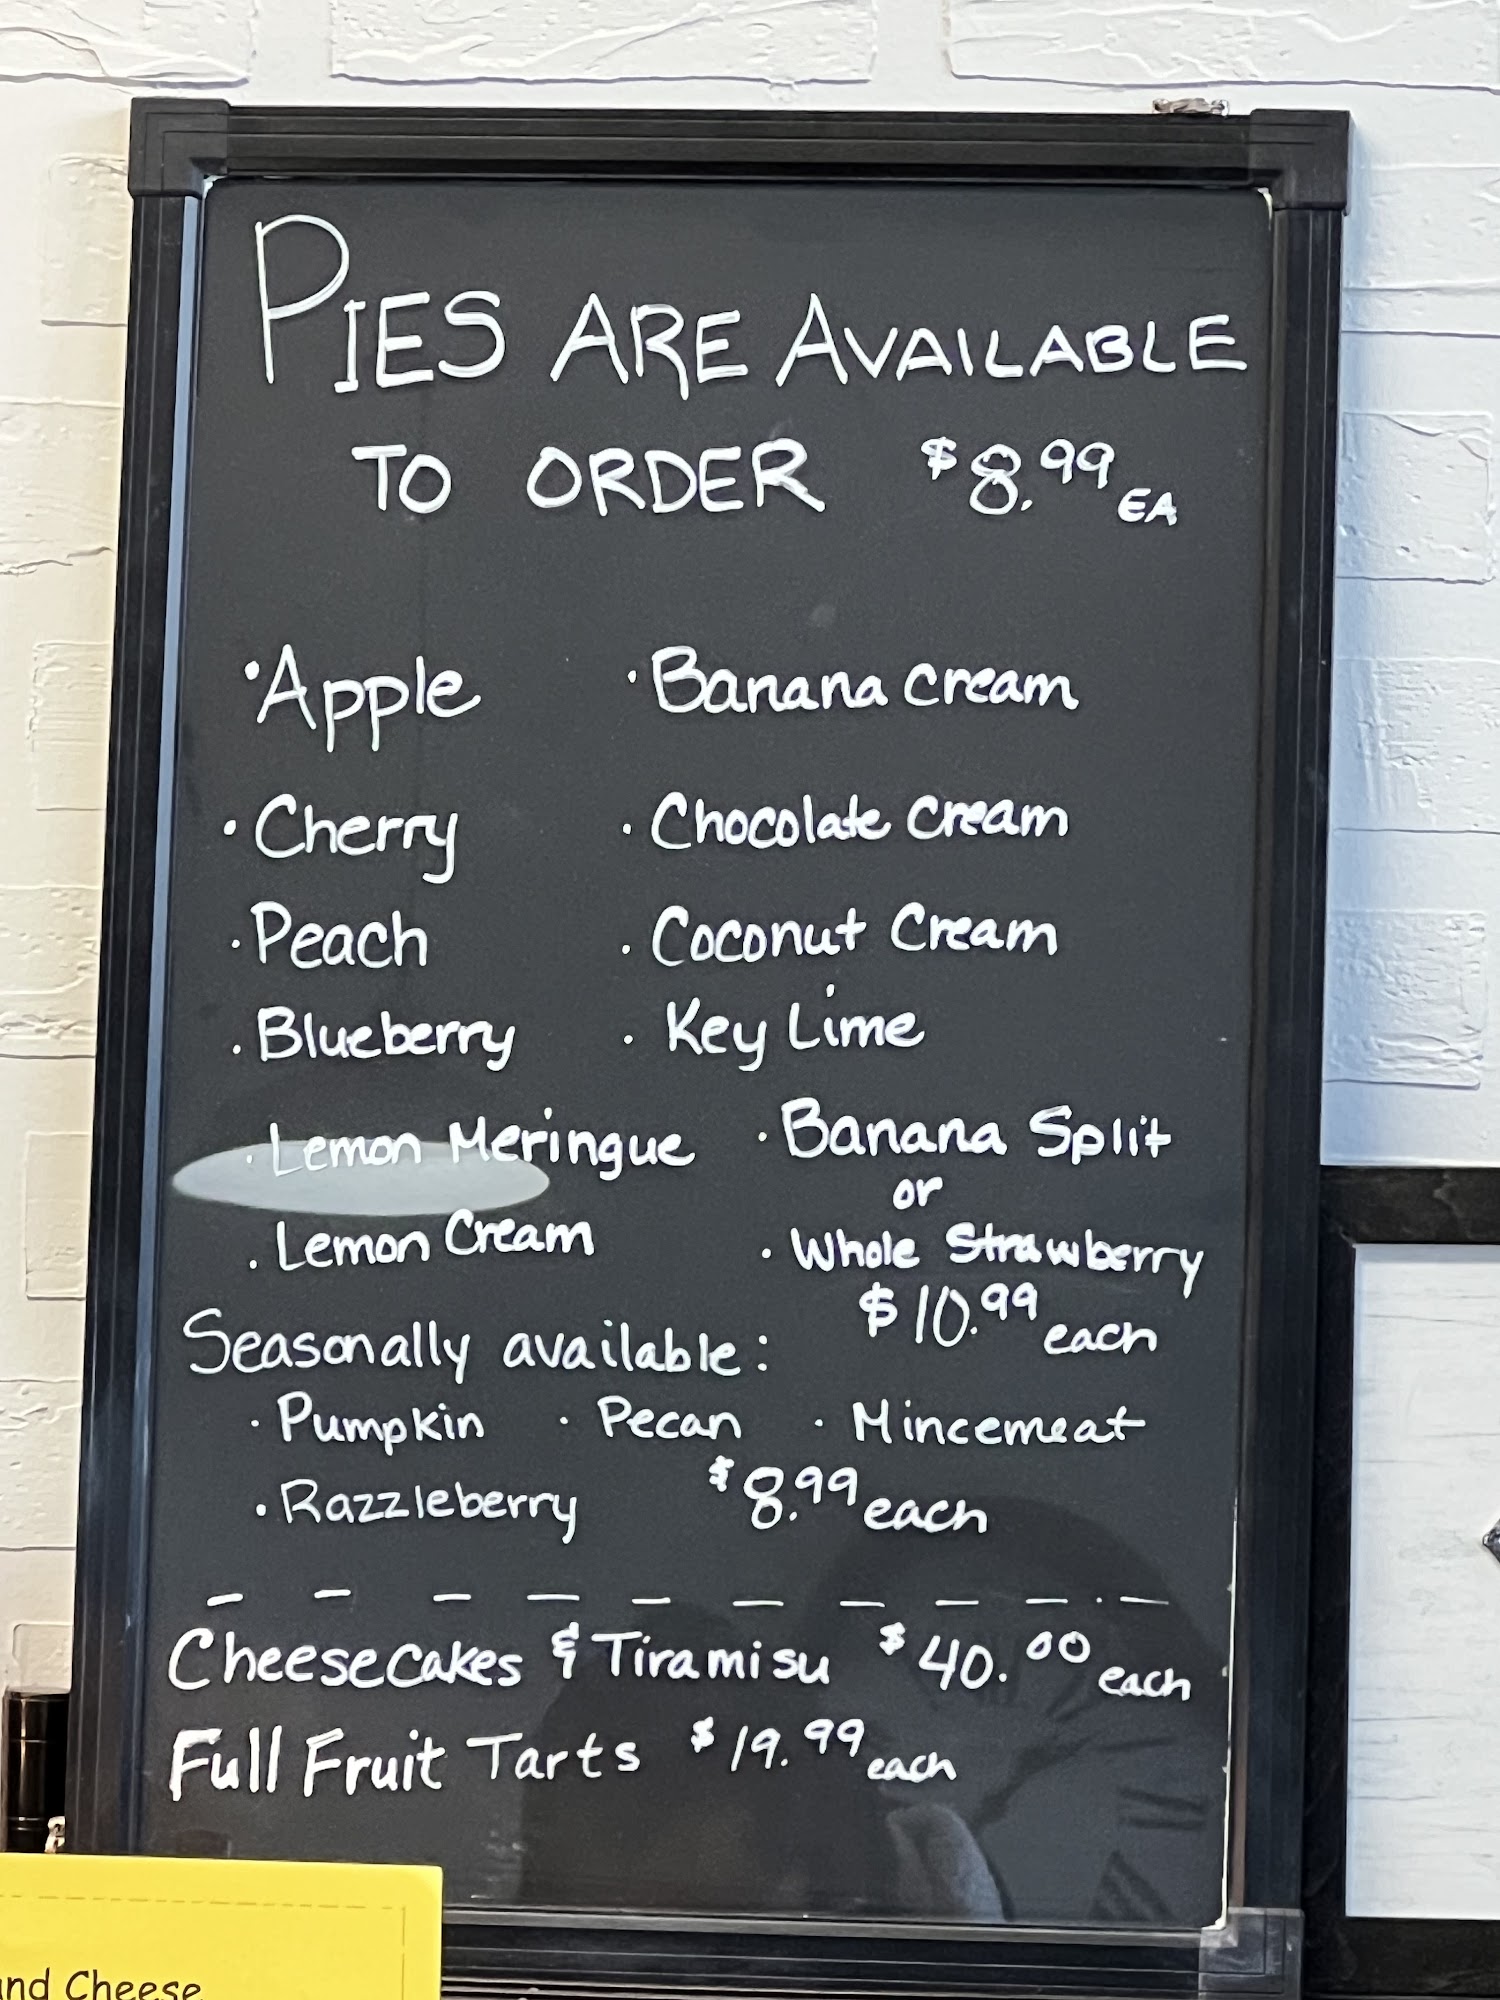 PIES ARE AVAILABLE
TO ORDER $8.99 EA
· Apple · Banana Cream
· Cherry · Chocolate Cream
· Peach · Coconut Cream
· Blueberry · Key Lime
· Lemon Meringue · Banana Split
or
· Lemon Cream · Whole Strawberry
$10.99 each
Seasonally available:
· Pumpkin · Pecan · Mincemeat
· Razzleberry $8.99 each
Cheesecakes & Tiramisu $40.00 each
Full Fruit Tarts $19.99 each
and Cheese